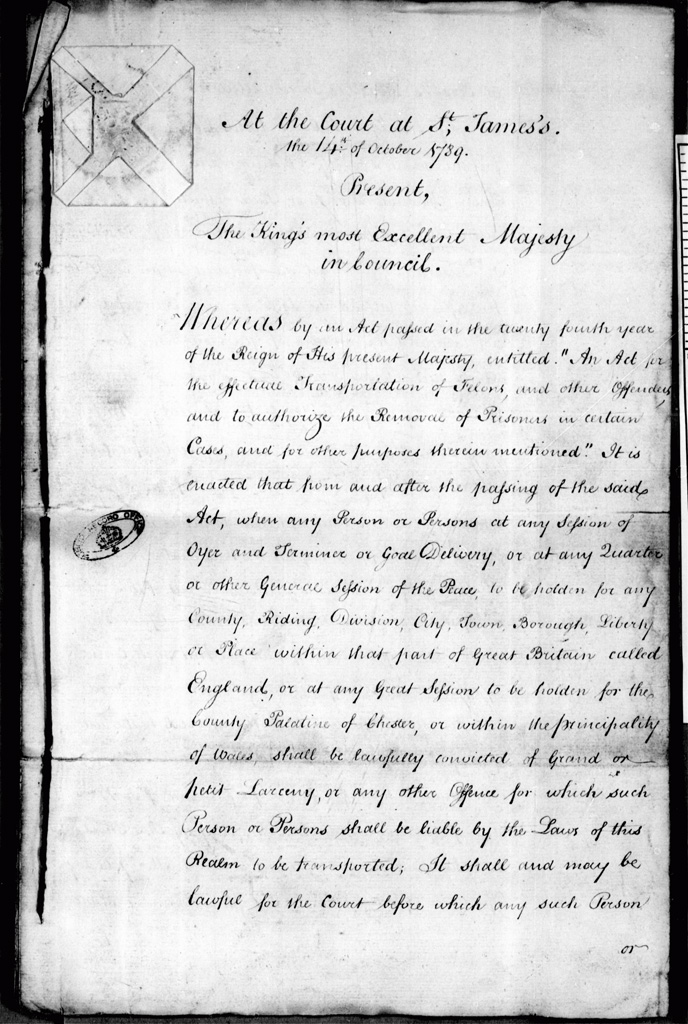 At the Court at St. James's.
the 14th of October 1789.
Present,
The King's most Excellent Majesty
in Council.
Whereas by an Act passed in the twenty fourth year
of the Reign of His present Majesty, entitled "An Act for
the effectual Transportation of Felons, and other Offenders,
and to authorize the Removal of Prisoners in certain
Cases, and for other purposes therein mentioned". It is
enacted that from and after the passing of the said
Act, when any Person or Persons at any Session of
Oyer and Terminer or Goal Delivery, or at any Quarter
or other General Session of the Peace, to be holden for any
County, Riding, Division, City, Town, Borough, Liberty
or Place within that part of Great Britain called
England, or at any Great Session to be holden for the
County Palatine of Chester, or within the principality
of Wales, shall be lawfully convicted of Grand or
petit Larceny, or any other Offence for which such
Person or Persons shall be liable by the Laws of this
Realm to be transported; It shall and may be
lawful for the Court before which any such Person
or
RECORD OFFICE